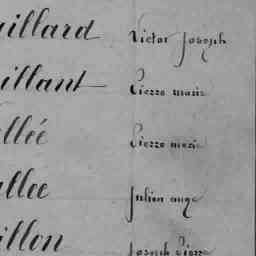 aillard Victor Joseph
aillant Pierre marie
allée Pierre marie
allee Julien ange
illon Joseph Pierre